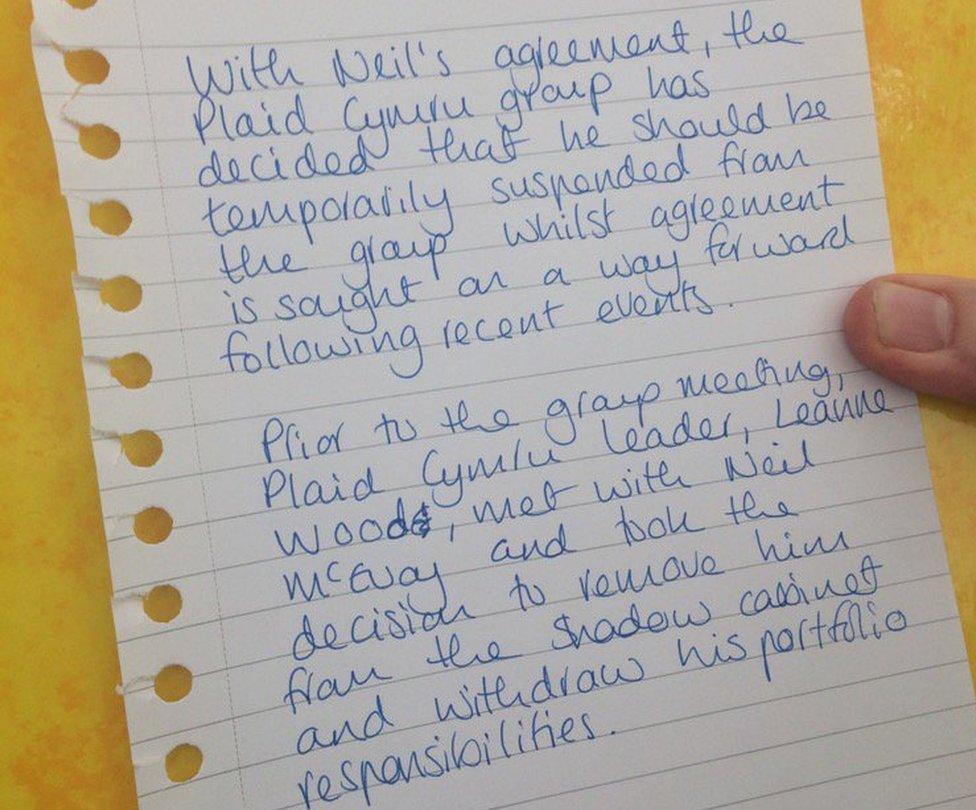 With Neil's agreement, the
Plaid Cymru group has
decided that he should be
temporarily suspended from
the group whilst agreement
is sought on a way forward
following recent events.
Prior to the group meeting,
Plaid Cymru leader, Leanne
Wood, met with Neil
McEvoy and took the
decision to remove him
from the shadow cabinet
and withdraw his portfolio
responsibilities.